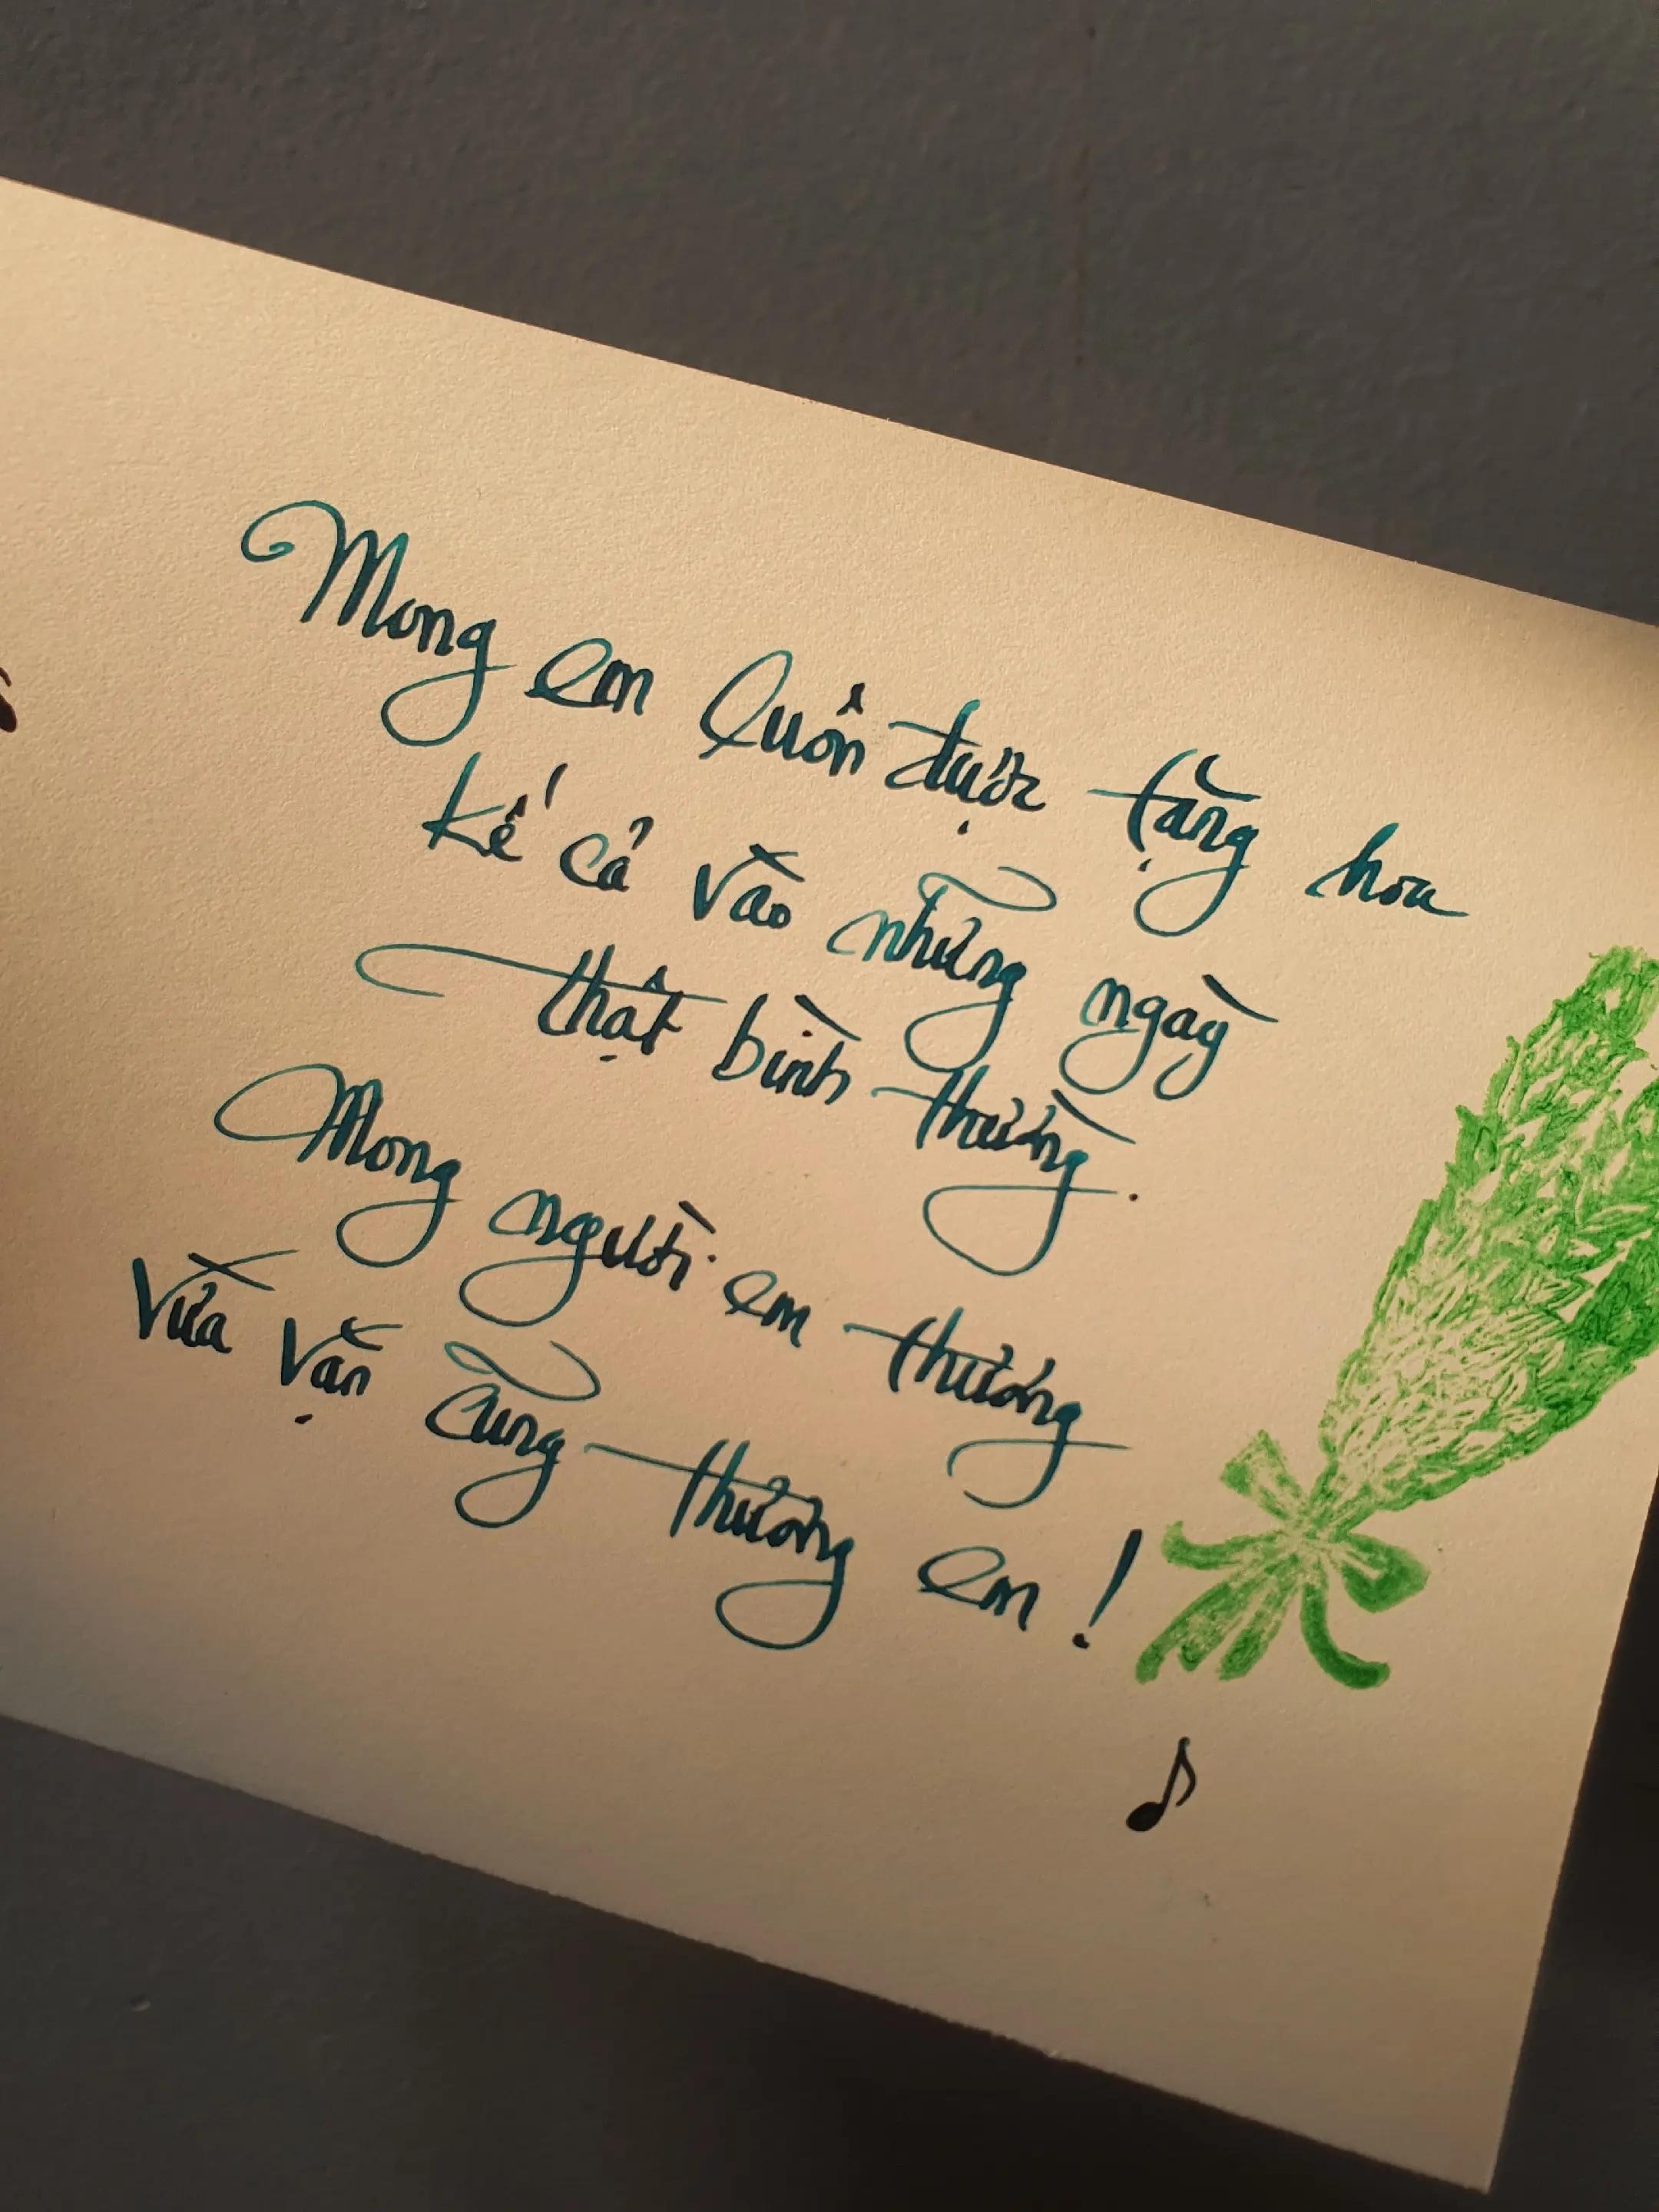 Mong em luôn được tặng hoa
kể cả vào những ngày
thật bình thường.
Mong người em thương
vừa vặn cũng thương em!